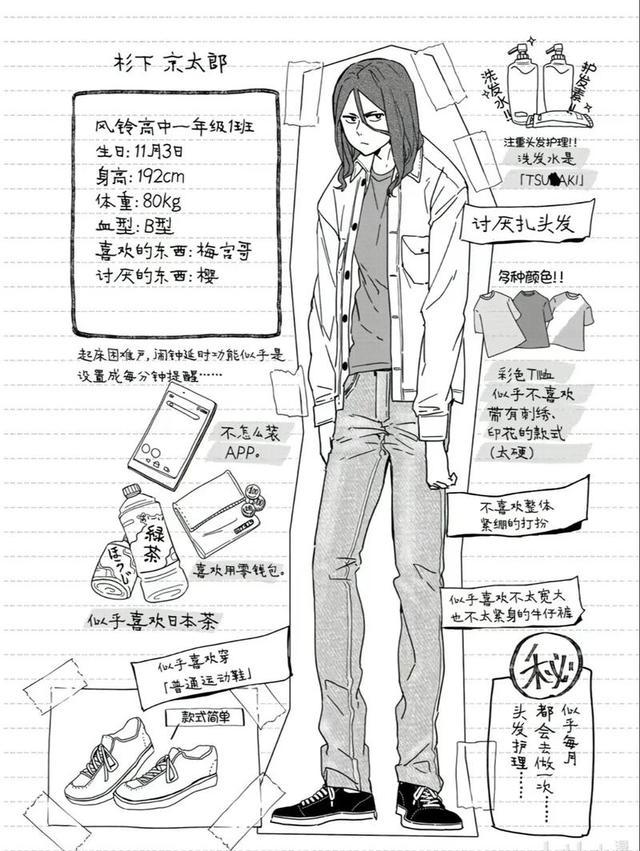 杉下 京太郎
风铃高中一年级1班
生日:11月3日
身高:192cm
体重:80kg
血型:B型
喜欢的东西:梅宫哥
讨厌的东西:樱
起床困难户,闹钟延时功能似乎是
设置成每分钟提醒……
不怎么装
APP。
緑茶
ほうじ
喜欢用零钱包。
似乎喜欢日本茶
似乎喜欢穿
「普通运动鞋」
款式简单
洗发水!!
护发素!!
注重头发护理!!
洗发水是
「TSU AKI」
讨厌扎头发
多种颜色!!
彩色T恤
似乎不喜欢
带有刺绣、
印花的款式
(太硬)
不喜欢整体
紧绷的打扮
似乎喜欢不太宽大
也不太紧身的牛仔裤
秘
似乎每月
都会去做一次
头发护理……